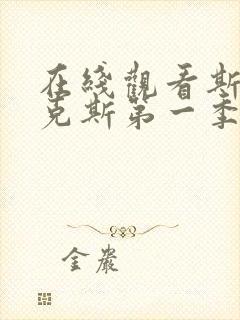 在綫觀看斯
克斯第一季
金嚴